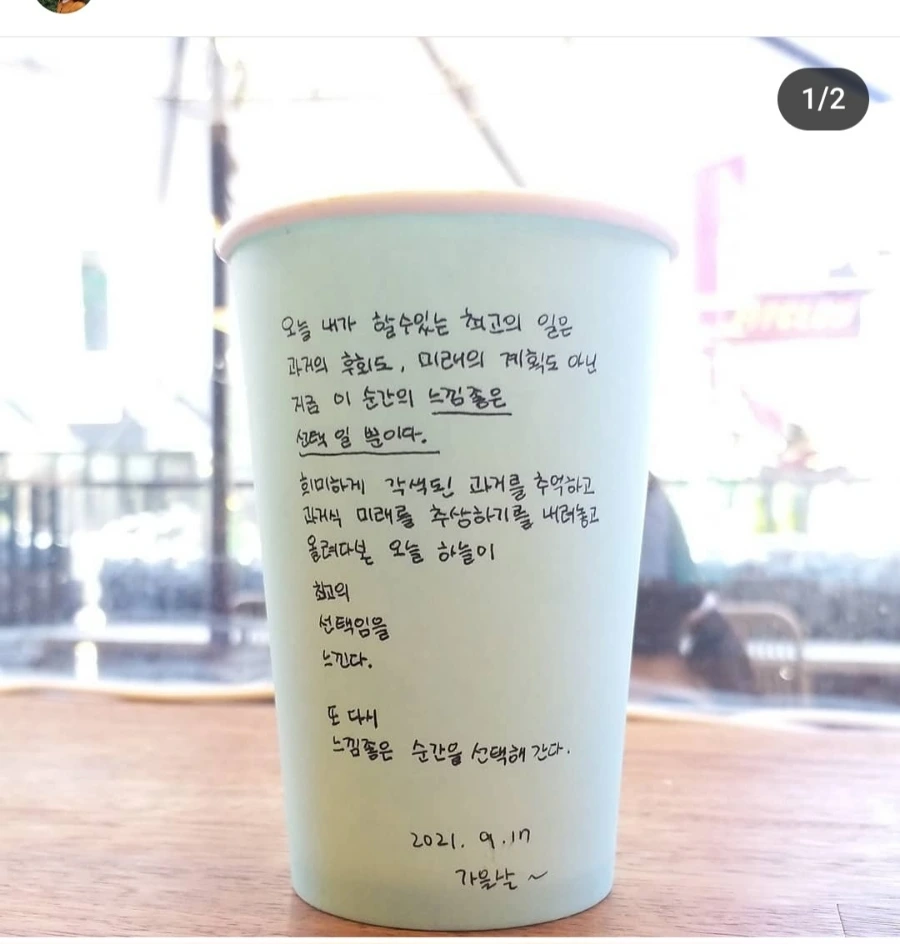 1/2
오늘 내가 할수있는 최고의 일은
과거의 후회도, 미래의 계획도 아닌
지금 이 순간의 느낌좋은
선택 일 뿐이다.
희미하게 각색된 과거를 추억하고
과거식 미래를 추상하기를 내려놓고
올려다본 오늘 하늘이
최고의
선택임을
느낀다.
또 다시
느낌좋은 순간을 선택해 간다.
2021. 9. 17
가을날 ~